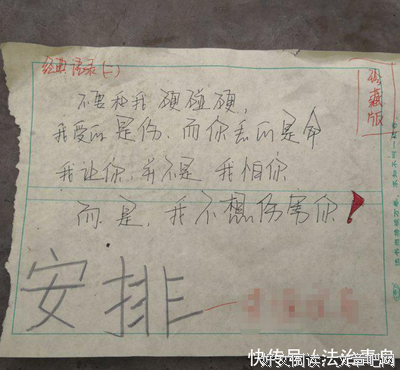 经典语录(二)
收藏版
不要和我硬碰硬,
我受的是伤,而你丢的是命
我让你,并不是我怕你
而是,我不想伤害你!
安排
快传号 /